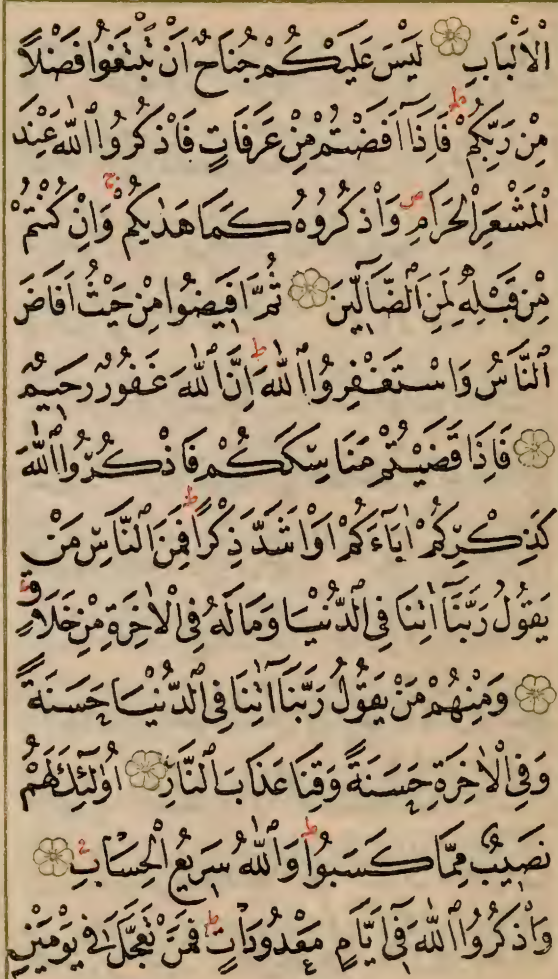 الْاَلْبَابِ لَيْسَ عَلَيْكُمْ جُنَاحٌ اَنْ تَبْتَغُوا فَضْلًا
مِنْ رَبِّكُمْ ط فَاِذَآ اَفَضْتُمْ مِنْ عَرَفَاتٍ فَاذْكُرُوا اللّٰهَ عِنْدَ
الْمَشْعَرِ الْحَرَامِ ص وَاذْكُرُوهُ كَمَا هَدٰيكُمْ ج وَاِنْ كُنْتُمْ
مِنْ قَبْلِهٖ لَمِنَ الضَّآلّٖينَ ثُمَّ اَفٖيضُوا مِنْ حَيْثُ اَفَاضَ
النَّاسُ وَاسْتَغْفِرُوا اللّٰهَ ط اِنَّ اللّٰهَ غَفُورٌ رَحٖيمٌ
فَاِذَا قَضَيْتُمْ مَنَاسِكَكُمْ فَاذْكُرُوا اللّٰهَ
كَذِكْرِكُمْ اٰبَآءَكُمْ اَوْ اَشَدَّ ذِكْرًا ط فَمِنَ النَّاسِ مَنْ
يَقُولُ رَبَّنَآ اٰتِنَا فِي الدُّنْيَا وَمَا لَهُ فِي الْاٰخِرَةِ مِنْ خَلَاقٍ
وَمِنْهُمْ مَنْ يَقُولُ رَبَّنَآ اٰتِنَا فِي الدُّنْيَا حَسَنَةً
وَفِي الْاٰخِرَةِ حَسَنَةً وَقِنَا عَذَابَ النَّارِ اُو۬لٰٓئِكَ لَهُمْ
نَصٖيبٌ مِمَّا كَسَبُوا ط وَاللّٰهُ سَرٖيعُ الْحِسَابِ
وَاذْكُرُوا اللّٰهَ فٖٓي اَيَّامٍ مَعْدُودَاتٍ ط فَمَنْ تَعَجَّلَ فٖي يَوْمَيْنِ